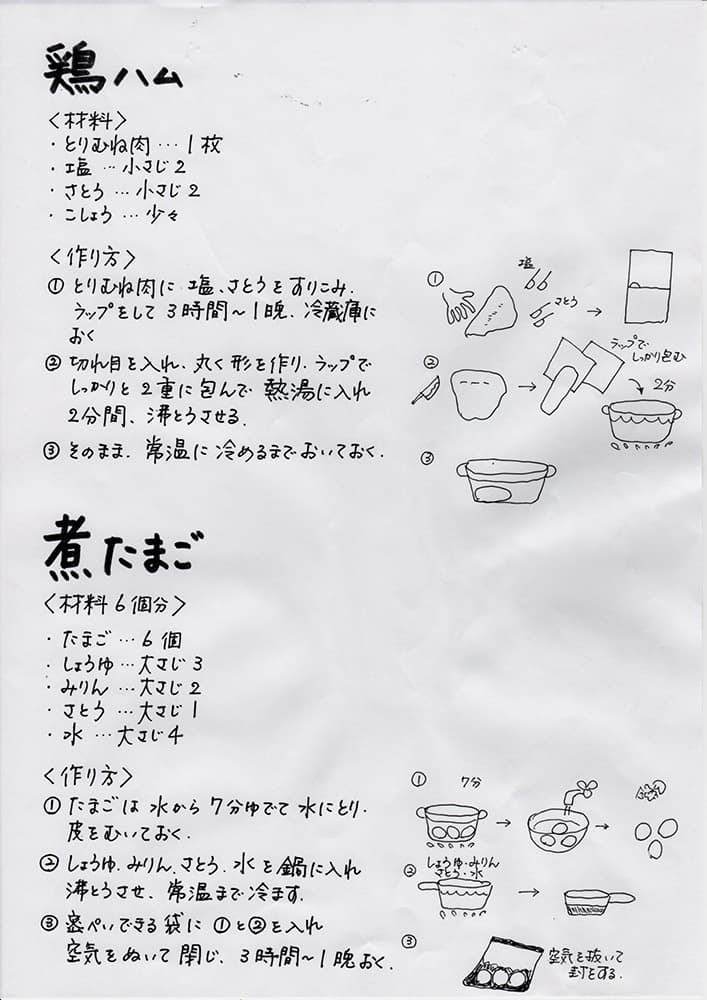 鶏ハム
〈材料〉
・とりむね肉…1枚
・塩…小さじ2
・さとう…小さじ2
・こしょう…少々
〈作り方〉
① とりむね肉に 塩、さとうをすりこみ、
ラップをして 3時間～1晩、冷蔵庫に
おく
② 切れ目を入れ、丸く形を作り、ラップで
しっかりと2重に包んで 熱湯に入れ
2分間、沸とうさせる。
③ そのまま、常温に冷めるまでおいておく。
①
塩
さとう
②
ラップで
しっかり包む
2分
③
煮たまご
〈材料6個分〉
・たまご…6個
・しょうゆ…大さじ3
・みりん…大さじ2
・さとう…大さじ1
・水…大さじ4
〈作り方〉
① たまごは水から7分ゆでて水にとり、
皮をむいておく。
② しょうゆ、みりん、さとう、水を鍋に入れ
沸とうさせ、常温まで冷ます。
③ 密ぺいできる袋に①と②を入れ
空気をぬいて閉じ、3時間～1晩おく。
① 7分
②
しょうゆ・みりん
さとう・水
③
空気を抜いて
封をする。